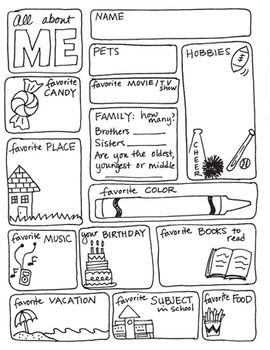 All about
ME
NAME
PETS
HOBBIES
favorite
CANDY
favorite MOVIE/T.V.
show
FAMILY: how
many?
Brothers
Sisters
Are you the oldest,
youngest or middle
CHEER
favorite PLACE
favorite COLOR
favorite MUSIC
your BIRTHDAY
favorite BOOKS to
read
favorite VACATION
favorite SUBJECT
in school
favorite FOOD